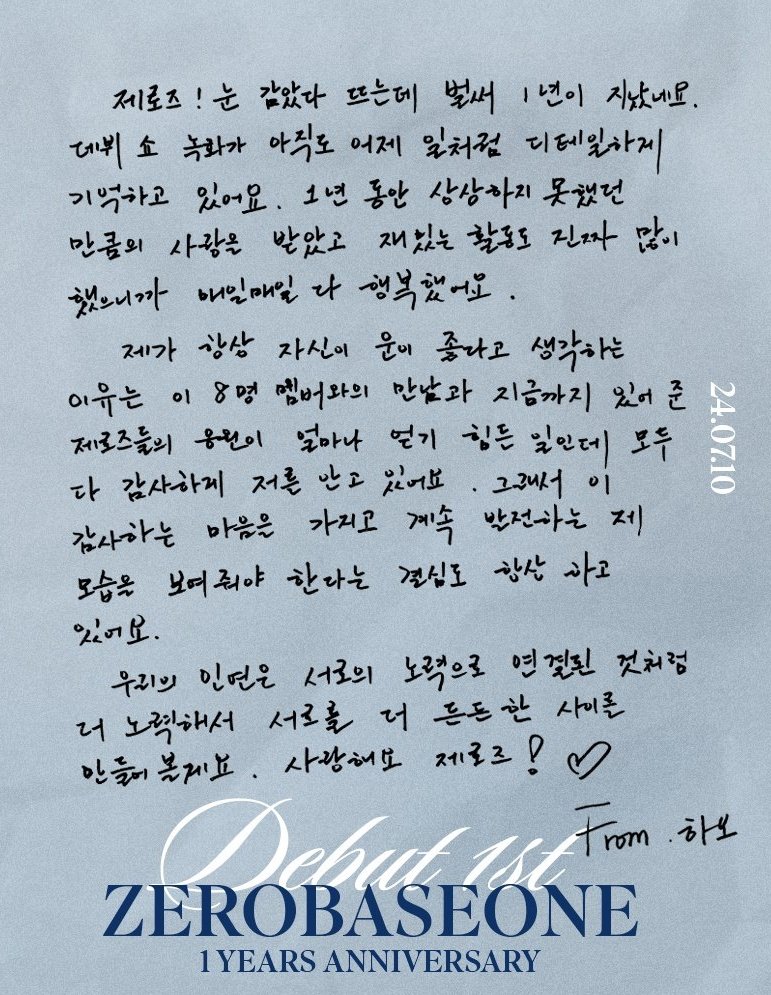 제로즈! 눈 감았다 뜨는데 벌써 1년이 지났네요.
데뷔 쇼 녹화가 아직도 어제 일처럼 디테일하게
기억하고 있어요. 1년 동안 상상하지 못했던
만큼의 사랑을 받았고 재밌는 활동도 진짜 많이
했으니까 매일매일 다 행복했어요.
제가 항상 자신이 운이 좋다고 생각하는
이유는 이 8명 멤버와의 만남과 지금까지 있어 준
제로즈들의 응원이 얼마나 얻기 힘든 일인데 모두
다 감사하게 저를 안고 있어요. 그래서 이
감사하는 마음을 가지고 계속 발전하는 제
모습을 보여줘야 한다는 결심도 항상 하고
있어요.
우리의 인연은 서로의 노력으로 연결된 것처럼
더 노력해서 서로를 더 든든한 사이를
만들어 볼게요. 사랑해요 제로즈! ♡
From. 하오
24.07.10
Debut 1st
ZEROBASEONE
1 YEARS ANNIVERSARY